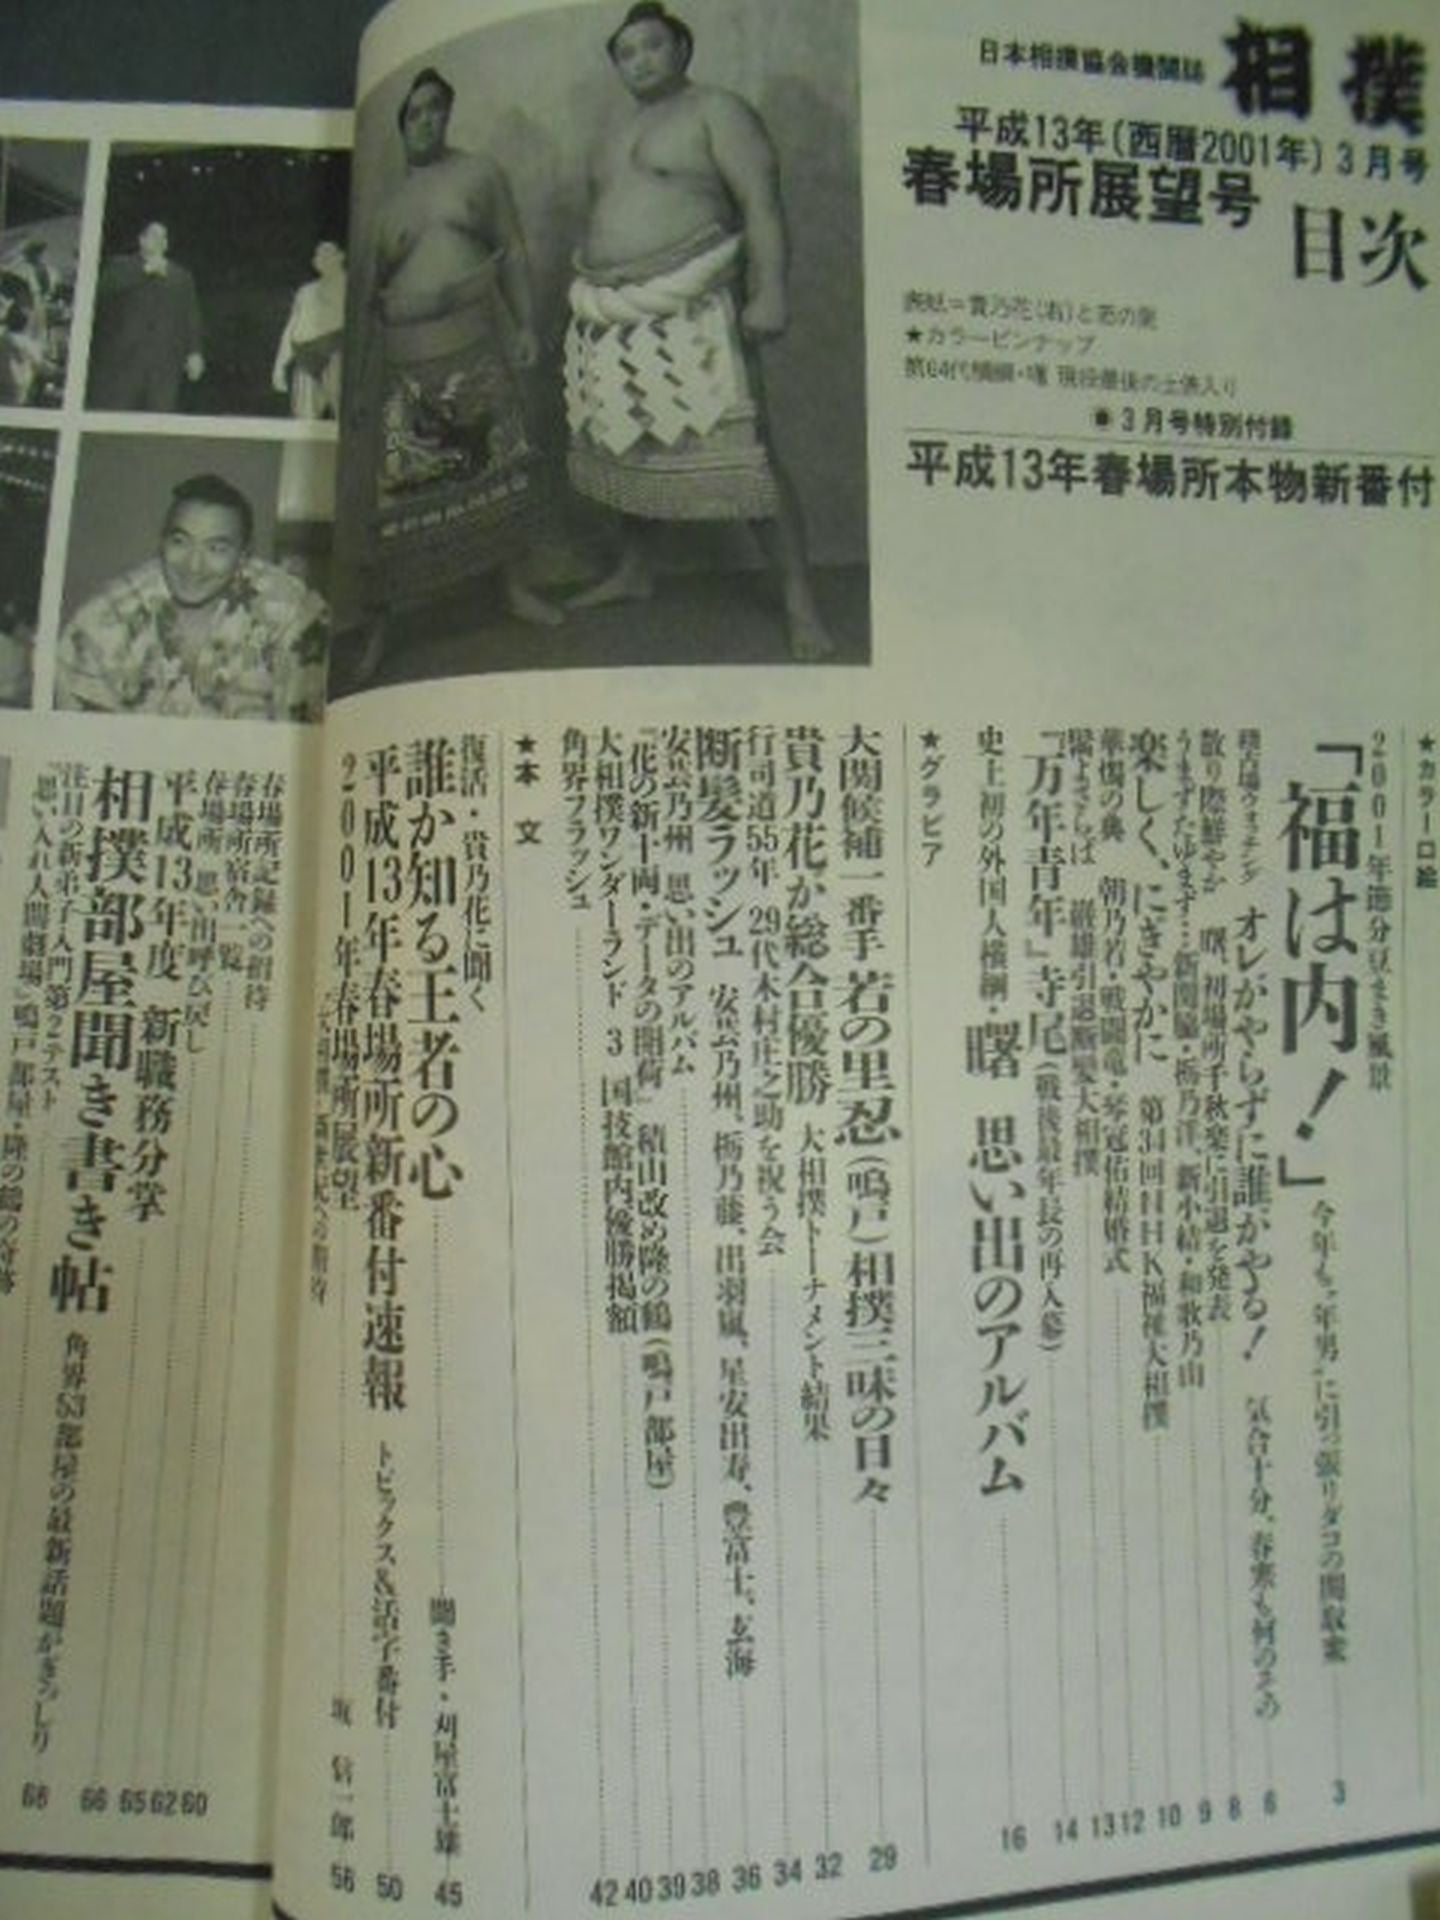 相撲
日本相撲協会機関誌
平成13年(西暦2001年)3月号
春場所展望号
目次
表紙=貴乃花(右)と若の里
★カラーピンナップ
第64代横綱・曙 現役最後の土俵入り
●3月号特別付録
平成13年春場所本物新番付
★カラー口絵
2001年節分豆まき風景
「福は内!」 今年も“年男”に引っ張りダコの関取衆 3
稽古場ウォッチング オレがやらずに誰がやる! 気合十分、春寒も何のその 6
散り際鮮やか 曙、初場所千秋楽に引退を発表 8
うまずたゆまず…新関脇・栃乃洋、新小結・和歌乃山 9
楽しく、にぎやかに 第34回NHK福祉大相撲 10
華燭の典 朝乃若・戦闘竜・琴冠佑結婚式 12
髷よさらば 巌雄引退断髪大相撲 13
『万年青年』寺尾(戦後最年長の再入幕) 14
史上初の外国人横綱・曙 思い出のアルバム 16
★グラビア
大関候補一番手 若の里忍(鳴戸)相撲三昧の日々 29
貴乃花が総合優勝 大相撲トーナメント結果 32
行司道55年 29代木村庄之助を祝う会 34
断髪ラッシュ 安芸乃州、栃乃藤、出羽嵐、星安出寿、豊富士、玄海 36
安芸乃州 思い出のアルバム 38
『花の新十両・データの開荷』 積山改め隆の鶴(鳴戸部屋) 39
大相撲ワンダーランド 3 国技館内優勝掲額 40
角界フラッシュ 42
★本文
復活・貴乃花に聞く
誰か知る王者の心 聞き手・刈屋富士雄 45
平成13年春場所新番付速報 トピックス&活字番付 50
2001年春場所展望 坂 信一郎 56
春場所記録への招待 60
春場所宿舎一覧
春場所 思い出呼び戻し 62
平成13年度 新職務分掌 65
相撲部屋聞き書き帖 角界53部屋の最新話題がぎっしり 66
注目の新弟子入門第2テスト 68
「思い入れ人間劇場」鳴戸部屋・隆の鶴の奇跡